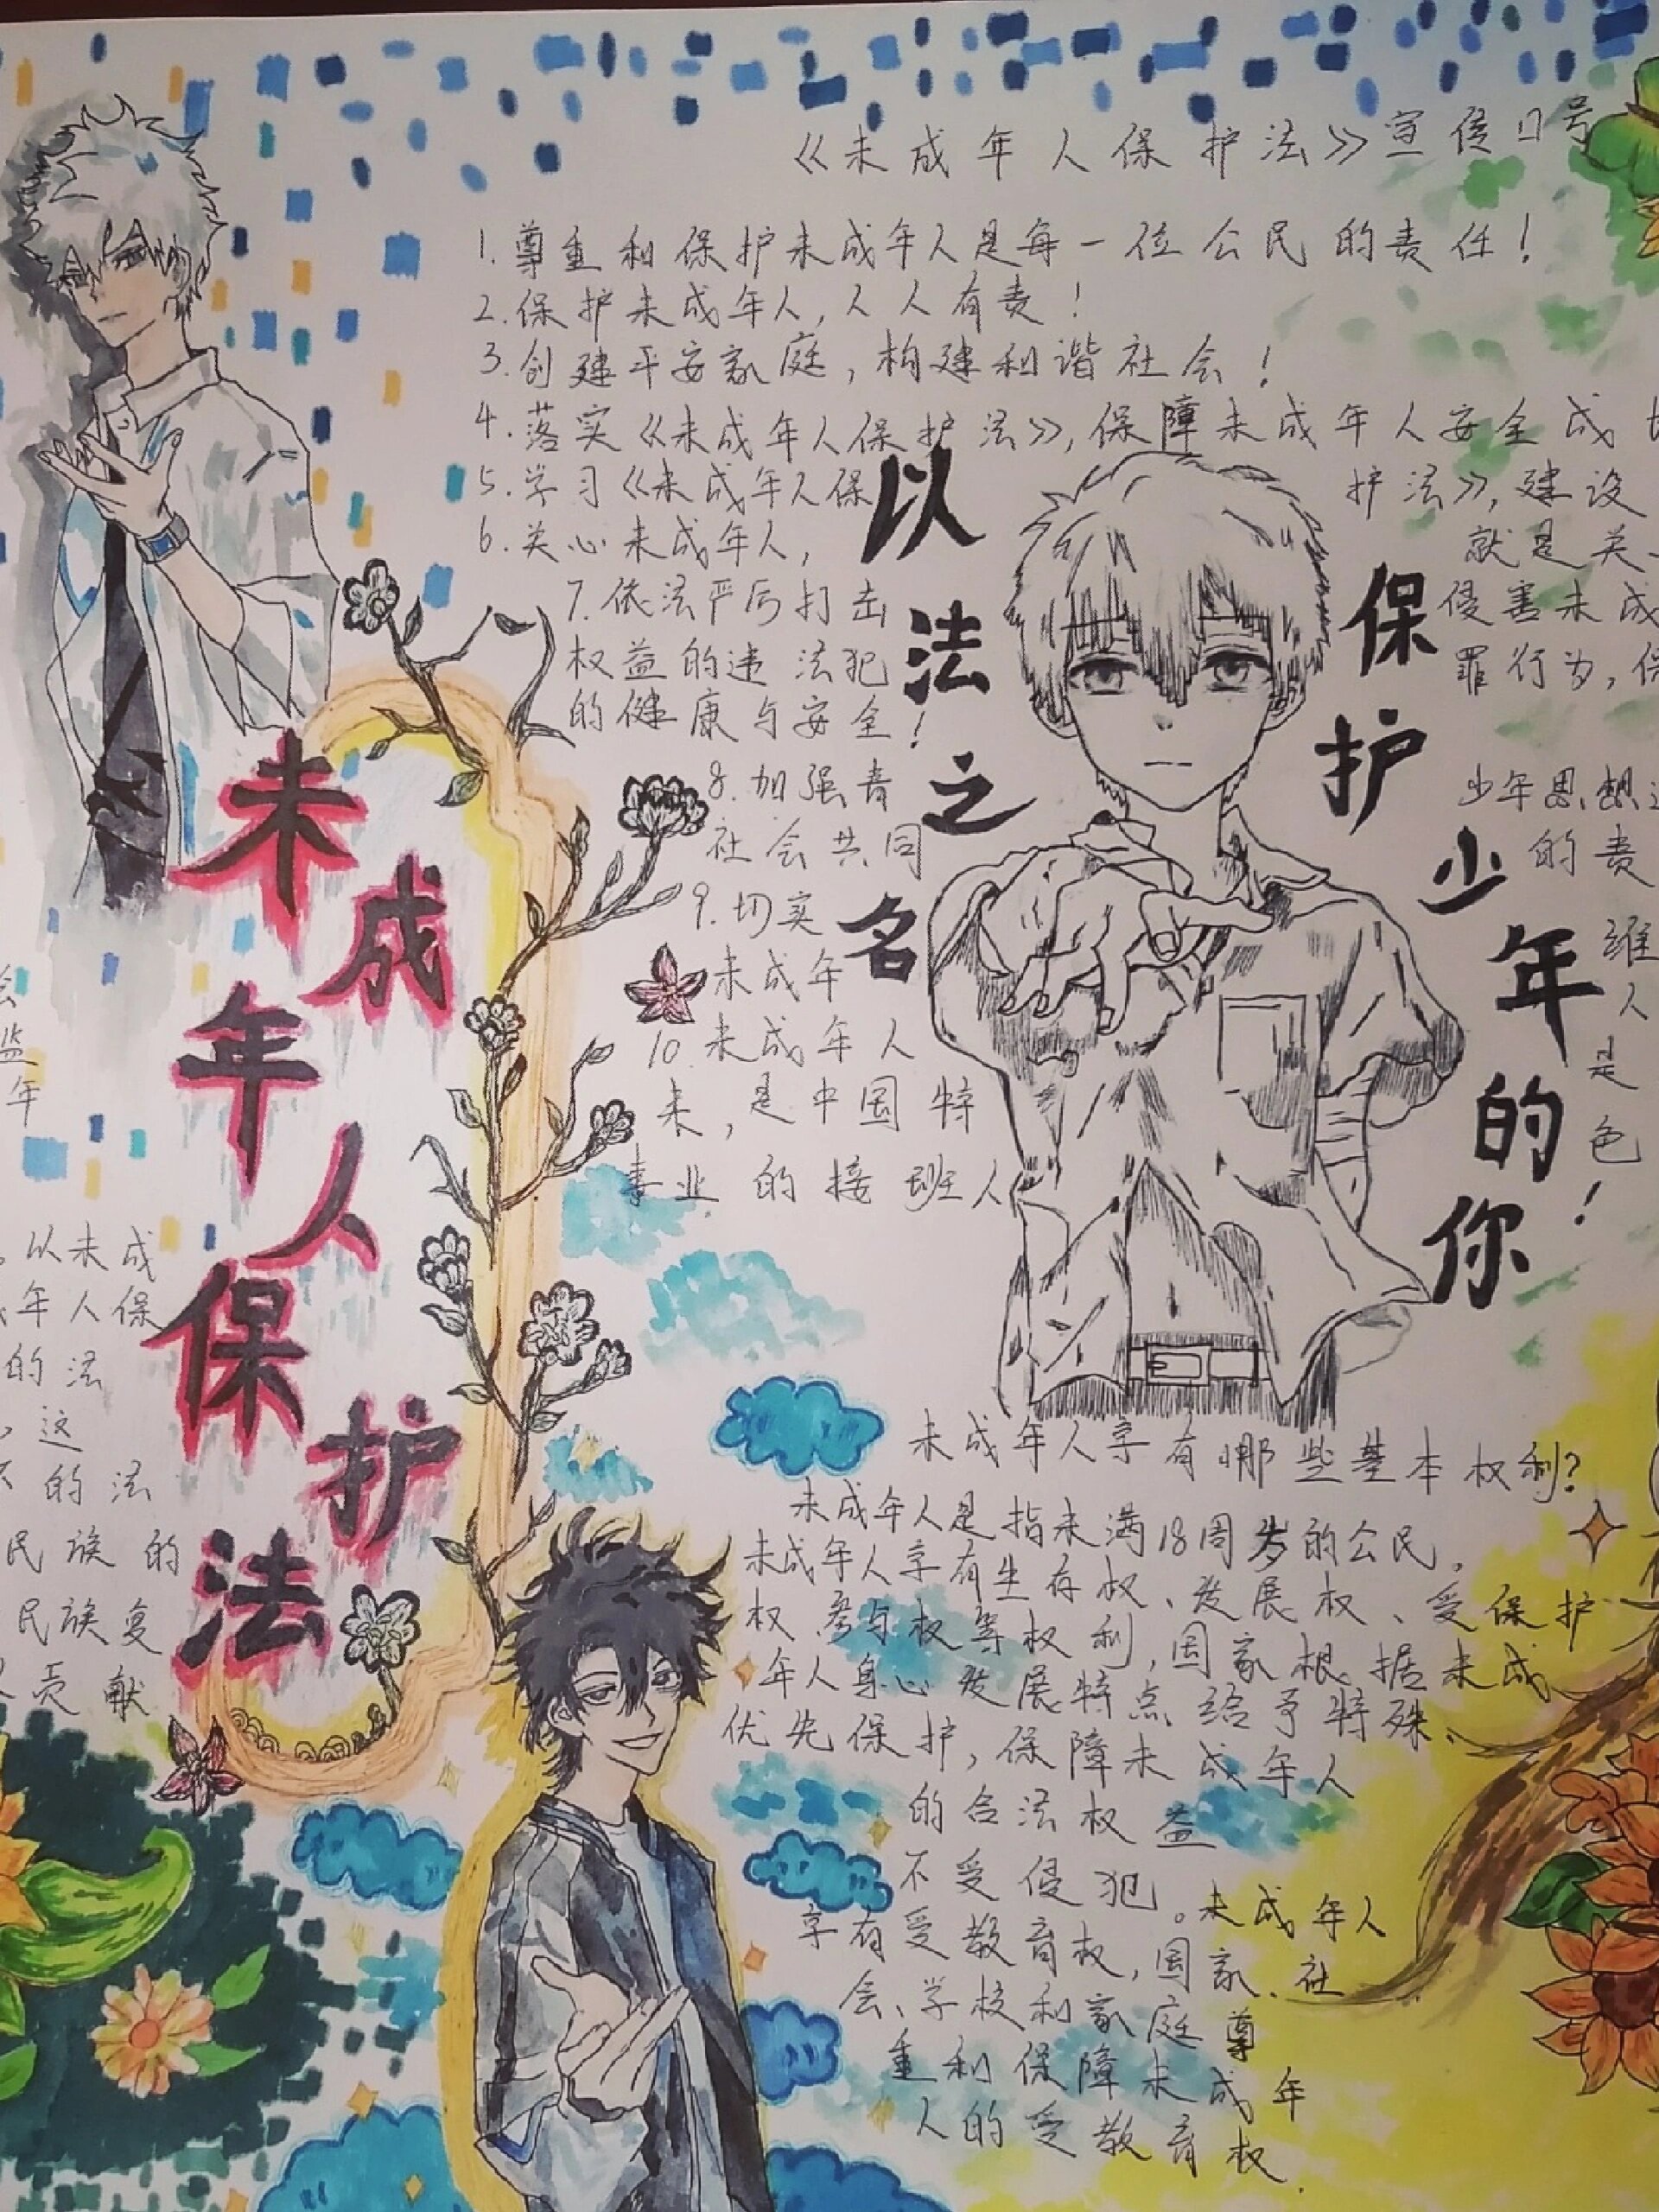 《未成年人保护法》宣传口号
1.尊重和保护未成年人是每一位公民的责任！
2.保护未成年人，人人有责！
3.创建平安家庭，构建和谐社会！
4.落实《未成年人保护法》，保障未成年人安全成
5.学习《未成年人保
护法》，建设
6.关心未成年人，
就是关
7.依法严厉打击
侵害未成
权益的违法犯
罪行为，保
的健康与安全！
8.加强青
少年思想
社会共同
的责
9.切实
维
未成年
人
10.未成年人
是
未，是中国特
色
事业的接班人
！
以法之名
保护少年的你
未成年人保护法
会
监
年
。以未成
年人保
的法
，这
的法
民族的
民族复
贡献
未成年人享有哪些基本权利？
未成年人是指未满18周岁的公民。
未成年人享有生存权、发展权、受保护
权、参与权等权利，国家根据未成
年人身心发展特点给予特殊、
优先保护，保障未成年人
的合法权益
不受侵犯。未成年人
享有受教育权，国家、社
会、学校和家庭尊
重和保障未成年
人的受教育权